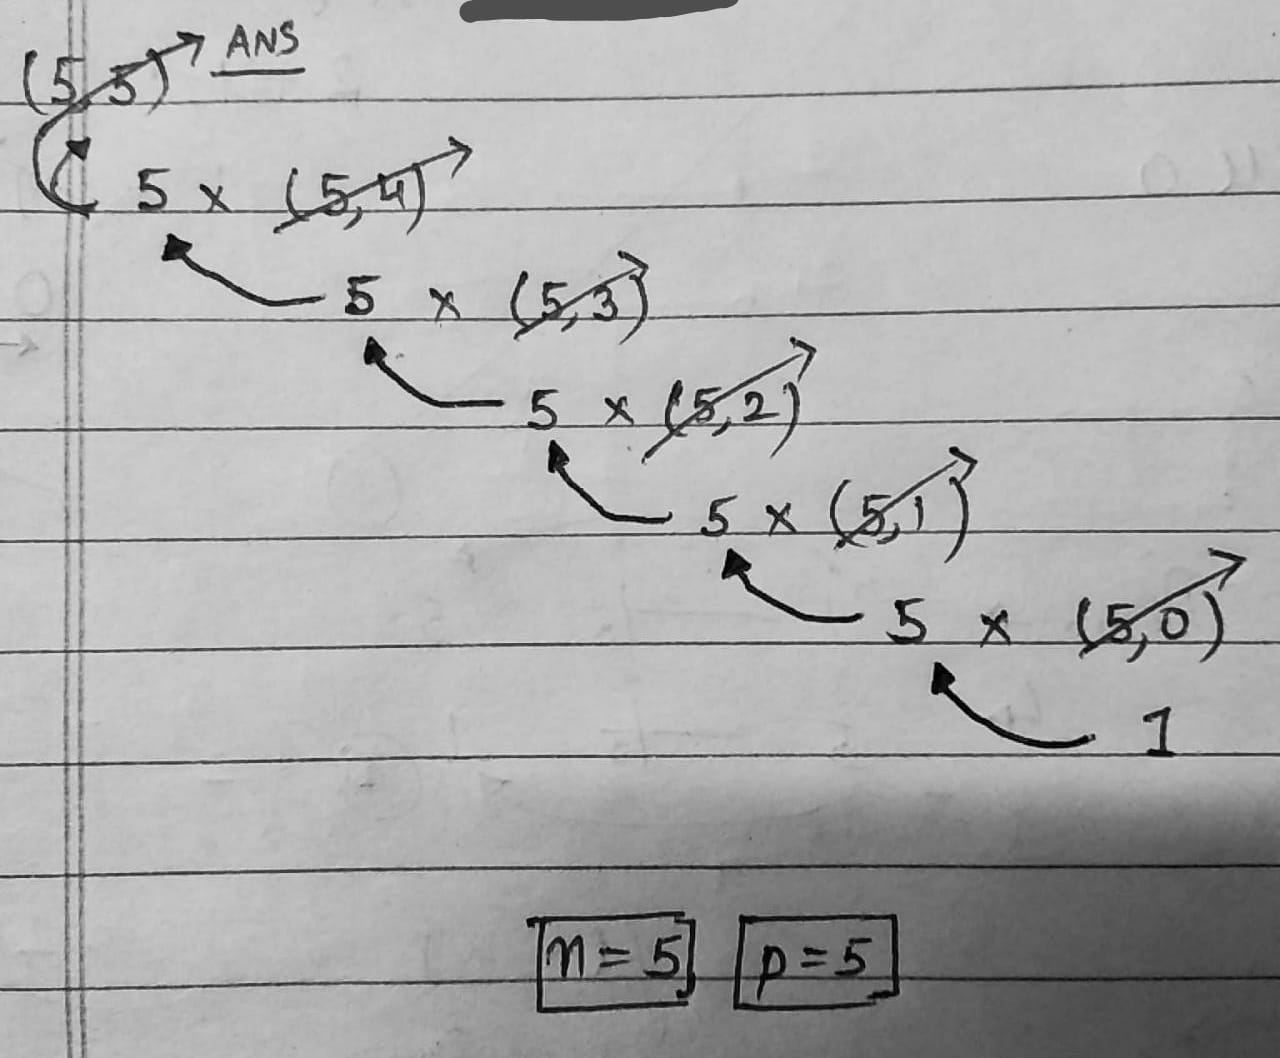 (5,5) ANS
5 x (5,4)
5 x (5,3)
5 x (5,2)
5 x (5,1)
5 x (5,0)
1
n = 5 p = 5